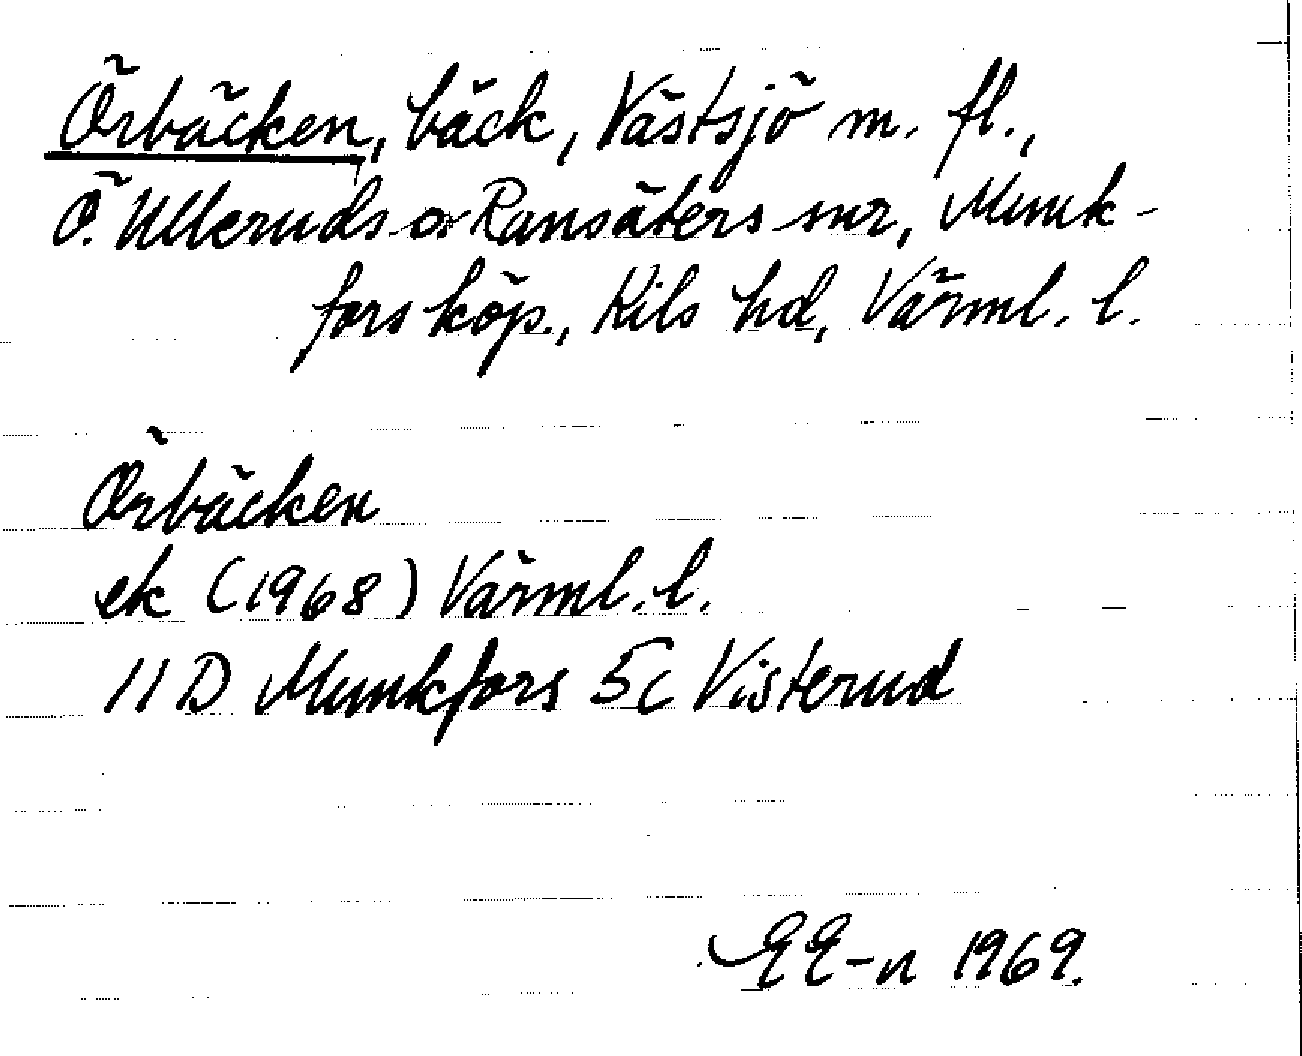 Örbäcken, bäck, Västsjö m. fl.,
Ö. Ulleruds o Ransäters snr, Munk-
fors köp., Kils hd, Värml. l.
Örbäcken
ek (1968) Värml. l.
11 D Munkfors 5c Visterud
EE-n 1969.